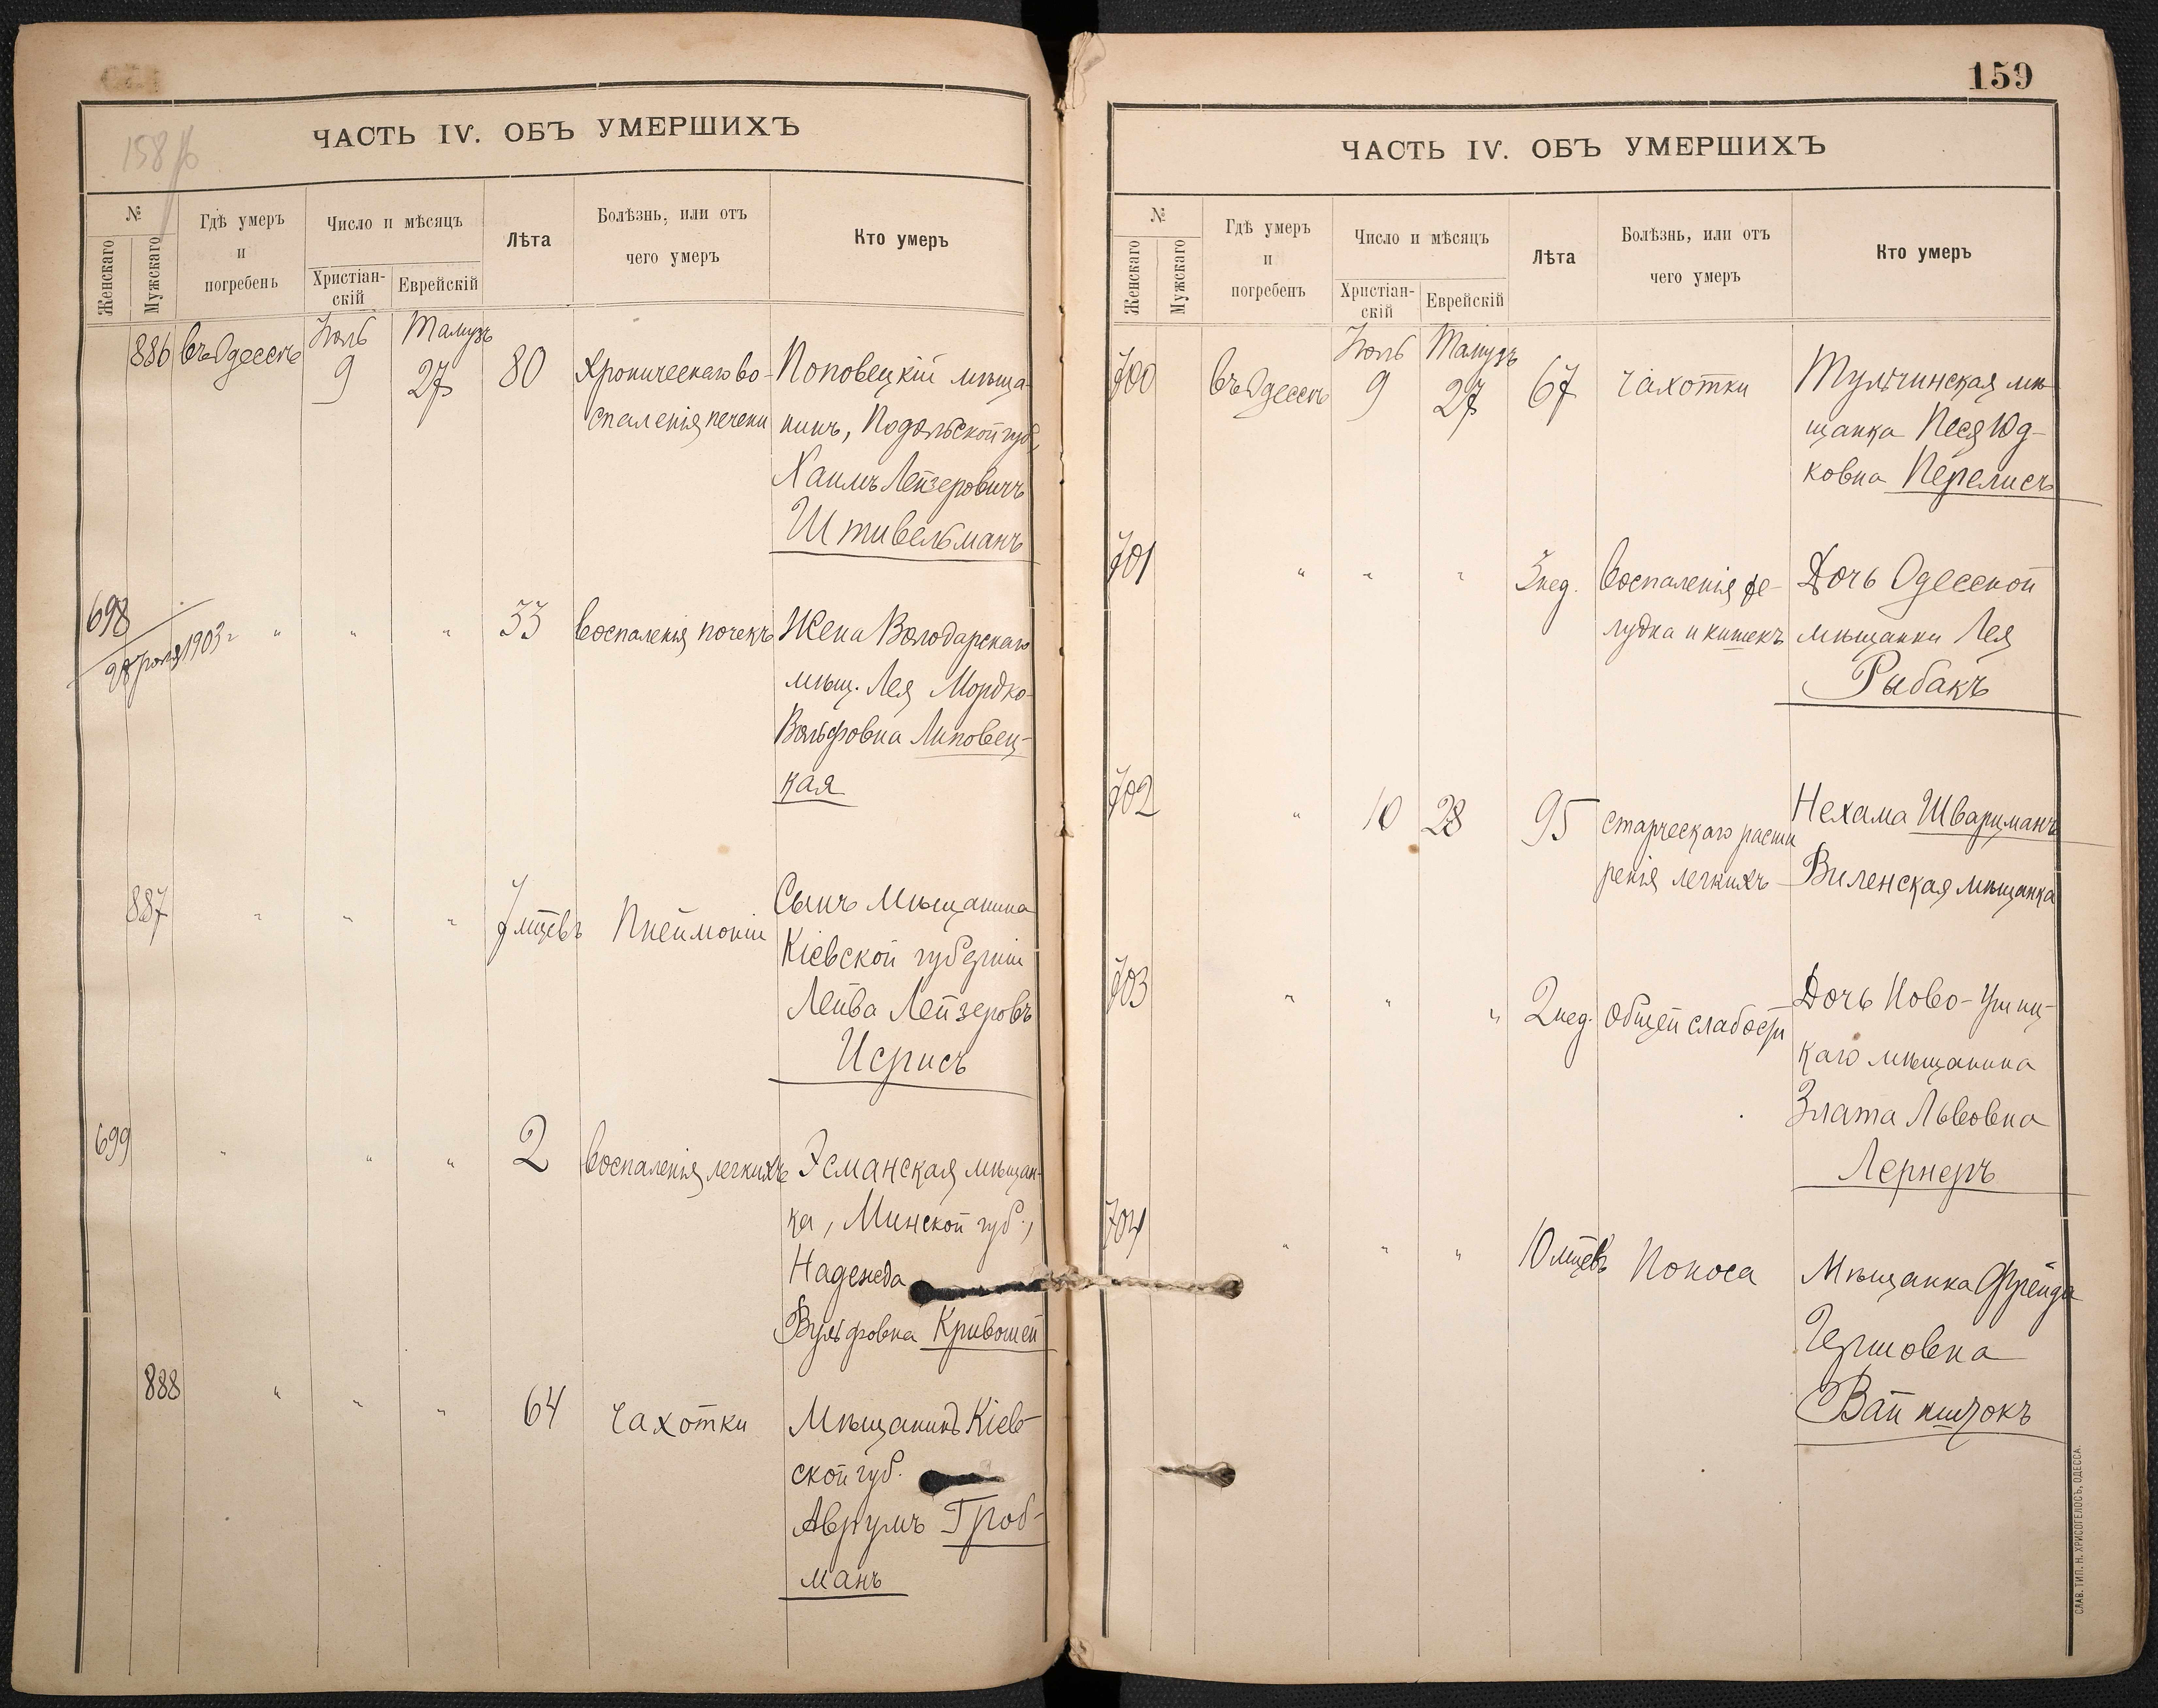 158 об
ЧАСТЬ IV. ОБЪ УМЕРШИХЪ
№
Женскаго
Мужскаго
Гдѣ умеръ
и
погребенъ
Число и мѣсяцъ
Христіан-
скій
Еврейскій
Лѣта
Болѣзнь, или отъ
чего умеръ
Кто умеръ
886
въ Одессѣ
Іюль
9
Тамузъ
27
80
Хроническаго во-
спаленія печени
Поповецкій мѣща-
нинъ, Подольской губ.,
Хаимъ Лейзеровичъ
Штивельманъ
698
1903 г
"
"
"
33
воспаленія почекъ
Жена Володарскаго
мѣщ. Лея Мордко-
Вольфовна Липовец-
кая
887
"
"
"
7 мцевъ
Пнеймоніи
Сынъ Мѣщанина
Кіевской губерніи
Лейба Лейзеровъ
699
"
"
"
2
воспаленія легкихъ
Эсманская мѣщан-
ка, Минской губ.,
Надежда
Вульфовна Кривошей
888
"
"
"
64
чахотки
Мѣщанинъ Кіев-
ской губ.
Аврумъ Гроб-
манъ
159
ЧАСТЬ IV. ОБЪ УМЕРШИХЪ
№
Женскаго
Мужскаго
Гдѣ умеръ
и
погребенъ
Число и мѣсяцъ
Христіан-
скій
Еврейскій
Лѣта
Болѣзнь, или отъ
чего умеръ
Кто умеръ
700
въ Одессѣ
Іюль
9
Тамузъ
27
67
чахотки
Тульчинская мѣ-
щанка Песя Юд-
ковна Перелисъ
701
"
"
"
3 нед.
воспаленія же-
лудка и кишекъ
Дочь Одесской
мѣщанки Лея
Рыбакъ
702
"
10
28
95
старческаго расши
ренія легкихъ
Нехама Шварцманъ
Виленская мѣщанка
703
"
"
"
2 нед.
Общей слабости
Дочь Ново-Ушиц-
каго мѣщанина
Злата Львовна
Лернеръ
704
"
"
"
10 мцевъ
Поноса
Мѣщанка Фрейда
Гершовна
СЛАВ. ТИП. Н. ХРИСОГЕЛОСЪ, ОДЕССА.